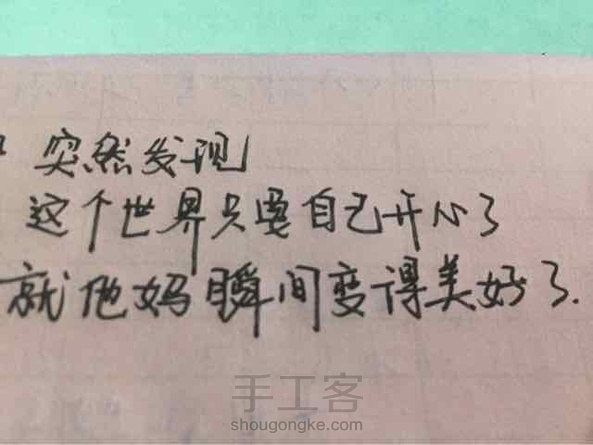 突然发现
这个世界只要自己开心了
就他妈瞬间变得美好了.
手工客
shougongke.com